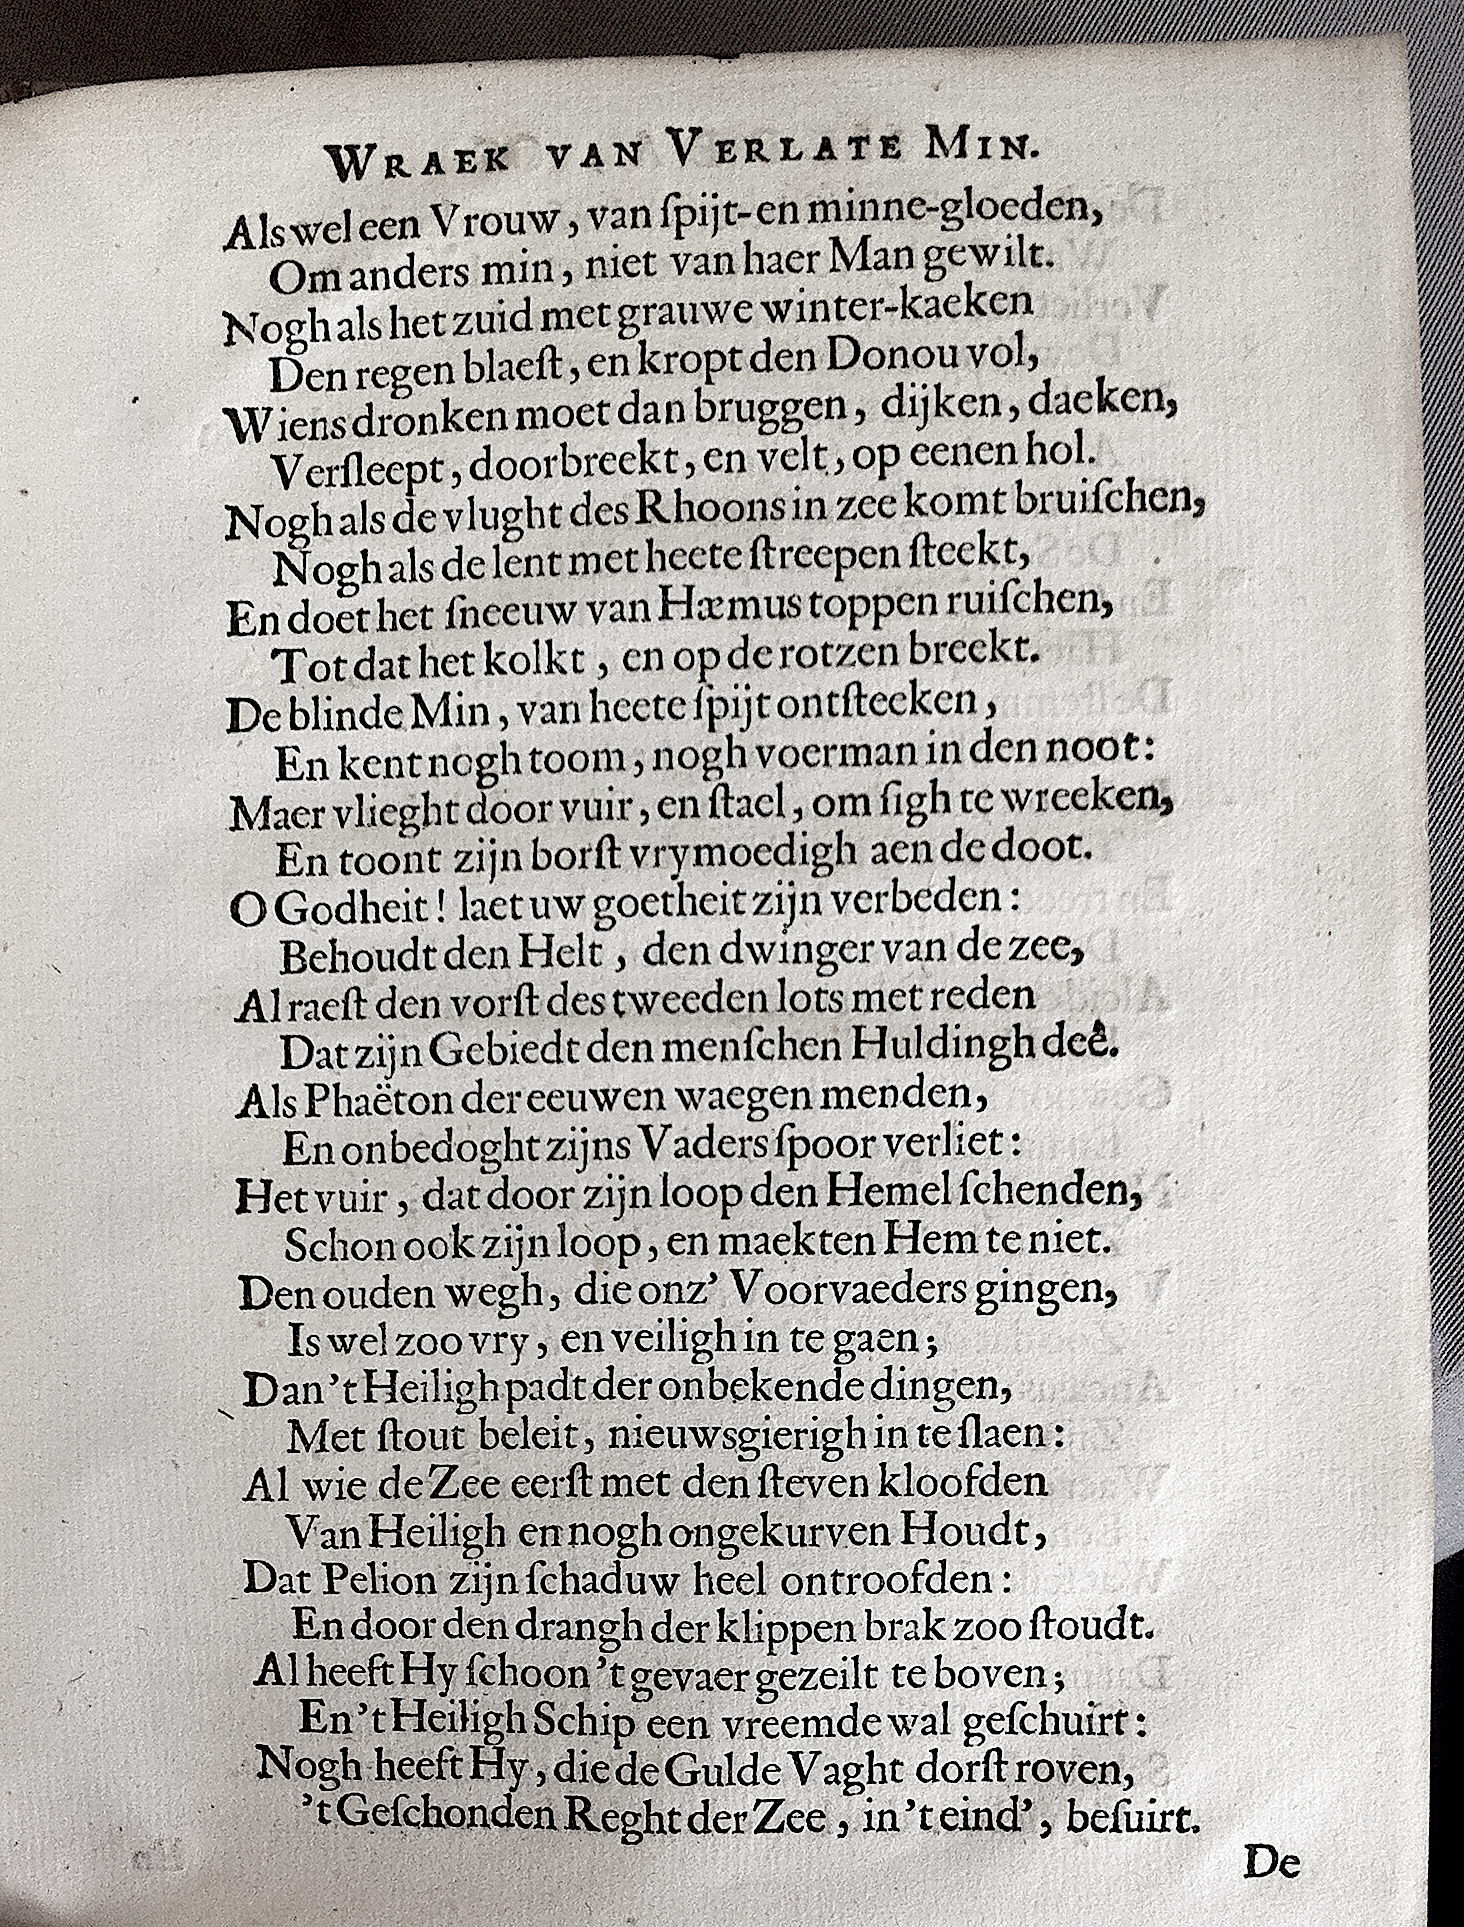 WRAEK VAN VERLATE MIN.
Als wel een Vrouw, van ſpijt- en minne-gloeden,
Om anders min, niet van haer Man gewilt.
Nogh als het zuid met grauwe winter-kaeken
Den regen blaeſt, en kropt den Donou vol,
Wiens dronken moet dan bruggen, dijken, daeken,
Verſleept, doorbreekt, en velt, op eenen hol.
Nogh als de vlught des Rhoons in zee komt bruiſchen,
Nogh als de lent met heete ſtreepen ſteekt,
En doet het ſneeuw van Hæmus toppen ruiſchen,
Tot dat het kolkt, en op de rotzen breekt.
De blinde Min, van heete ſpijt ontſteeken,
En kent nogh toom, nogh voerman in den noot:
Maer vlieght door vuir, en ſtael, om ſigh te wreeken,
En toont zijn borſt vrymoedigh aen de doot.
O Godheit! laet uw goetheit zijn verbeden:
Behoudt den Helt, den dwinger van de zee,
Al raeſt den vorſt des tweeden lots met reden
Dat zijn Gebiedt den menſchen Huldingh deê.
Als Phaëton der eeuwen waegen menden,
En onbedoght zijns Vaders ſpoor verliet:
Het vuir, dat door zijn loop den Hemel ſchenden,
Schon ook zijn loop, en maekten Hem te niet.
Den ouden wegh, die onz' Voorvaeders gingen,
Is wel zoo vry, en veiligh in te gaen;
Dan 't Heiligh padt der onbekende dingen,
Met ſtout beleit, nieuwsgierigh in te ſlaen:
Al wie de Zee eerſt met den ſteven kloofden
Van Heiligh en nogh ongekurven Houdt,
Dat Pelion zijn ſchaduw heel ontroofden:
En door den drangh der klippen brak zoo ſtoudt.
Al heeft Hy ſchoon 't gevaer gezeilt te boven;
En 't Heiligh Schip een vreemde wal geſchuirt:
Nogh heeft Hy, die de Gulde Vaght dorſt roven,
't Geſchonden Reght der Zee, in 't eind', beſuirt.
De